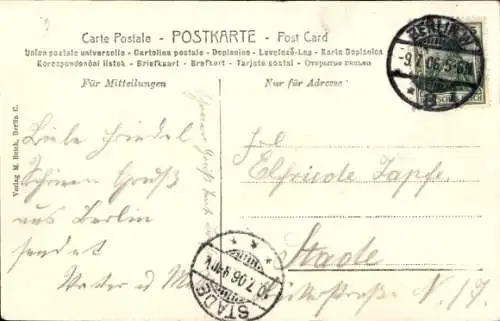 Carte Postale - POSTKARTE - Post Card
Union postale universelle - Cartolina postale - Dopisnica - Levelező-Lap - Karta Dopisnica
Korespondenční lístek - Briefkaart - Brefkort - Tarjeta postal - Открытое письмо
Für Mitteilungen
Nur für Adresse
BERLIN.W.
-9.7.06.5-6N.
* 8 *
Verlag M. Reich, Berlin C.
Liebe Friedel
Schönen Gruß
aus Berlin
sendet
Vater u M
Frl.
Elfriede Zapfe.
Stade
N. 17.
STADE
10.7.06.9-10V.